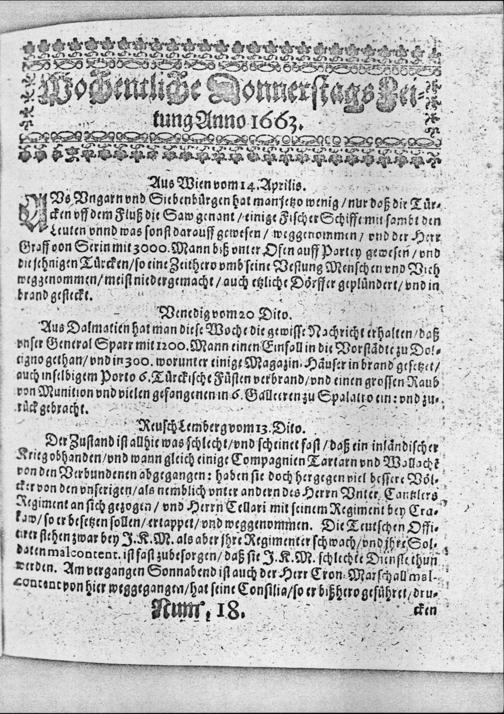 Wochentliche Donnerstags Zei-
tung Anno 1663.
Aus Wien vom 14. Aprilis.
AUs Ungarn und Siebenbürgen hat man jetzo wenig / nur daß die Tür-
cken uff dem Fluß die Saw genant / einige Fischer Schiffe mit sambt den
Leuten unnd was sonst darauff gewesen / weggenommen / und der Herr
Graff von Serin mit 3000. Mann biß unter Ofen auff Partey gewesen / und
die jehnigen Türcken / so eine Zeithero umb seine Vestung Menschen und Vieh
weggenommen / meist niedergemacht / auch etzliche Dörffer geplündert / und in
brand gesteckt.
Venedig vom 20 Dito.
Aus Dalmatien hat man diese Woche die gewisse Nachricht erhalten / daß
unser General Sparr mit 1200. Mann einen Einfall in die Vorstädte zu Dol-
cigno gethan / und in 300. worunter einige Magazin-Häuser in brand gesetzet /
auch inselbigem Porto 6. Türckische Füsten verbrand / und einen grossen Raub
von Munition und vielen gefangenen in 6. Galleeren zu Spalatro ein: und zu-
rück gebracht.
Reusch Lemberg vom 13. Dito.
Der Zustand ist allhie was schlecht / und scheinet fast / daß ein inländischer
Krieg obhanden / und wann gleich einige Compagnien Tartarn und Wallache
von den Verbundenen abgegangen: haben sie doch hergegen viel bessere Völ-
cker von den unserigen / als nemblich unter andern des Herrn Unter Cantzlers
Regiment an sich gezogen / und Herrn Cellari mit seinem Regiment bey Cra-
kaw / so er besetzen sollen / ertappet / und weggenommen. Die Teutschen Offi-
cirer stehen zwar bey J. K. M. als aber ihre Regimenter schwach / und ihre Sol-
daten malcontent, ist fast zubesorgen / daß sie J. K. M. schlechte Dienste thun
werden. Am vergangen Sonnabend ist auch der Herr Cron-Marschall mal-
content von hier weggegangen / hat seine Consilia / so er bißhero geführet / dru-
cken
Num. 18.